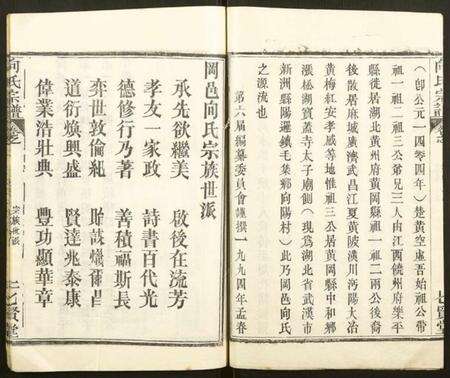 向氏宗譜
(即公元一四零四年)楚黃空虛吾始祖公帶
祖一祖二祖三公爺兄三人由江西饒州府樂平
縣徙居湖北黃州府黃岡縣祖一祖二兩公後裔
後散居麻城廣濟武昌江夏黃陂漢川沔陽大冶
黃梅紅安孝感等地惟祖三公居黃岡縣中和鄉
漲松湖寶蓋寺太子廟側(現爲湖北省武漢市
新洲縣陽邏鎮毛集鄉向陽村)此乃岡邑向氏
之源流也
第六屆編纂委員會謹撰一九九四年孟春
七賢堂
岡邑向氏宗族世派
承先欲繼美 啟後在流芳
孝友一家政 詩書百代光
德修行乃著 善積福斯長
奕世敦倫紀
道衍煥興盛 賢達兆泰康
偉業浩壯典 豐功顯華章
向氏宗譜
宗族世派
七賢堂